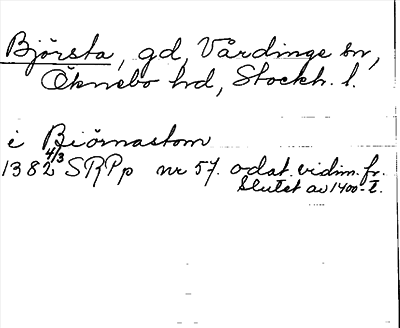 Björsta, gd, Vårdinge sn,
Öknebo hd, Stockh. l.
i Biörnastom
1382 4/3 SRPp nr 57. odat. vidim. fr.
slutet av 1400-t.